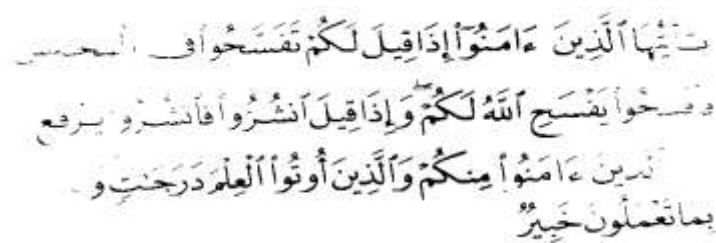 يَٰٓأَيُّهَا ٱلَّذِينَ ءَامَنُوٓا۟ إِذَا قِيلَ لَكُمْ تَفَسَّحُوا۟ فِى
يَفْسَحِ ٱللَّهُ لَكُمْ ۖ وَإِذَا قِيلَ ٱنشُزُوا۟ فَٱنشُزُوا۟ يَرْفَعِ
ٱلَّذِينَ ءَامَنُوا۟ مِنكُمْ وَٱلَّذِينَ أُوتُوا۟ ٱلْعِلْمَ دَرَجَٰتٍ و
بِمَا تَعْمَلُونَ خَبِيرٌ